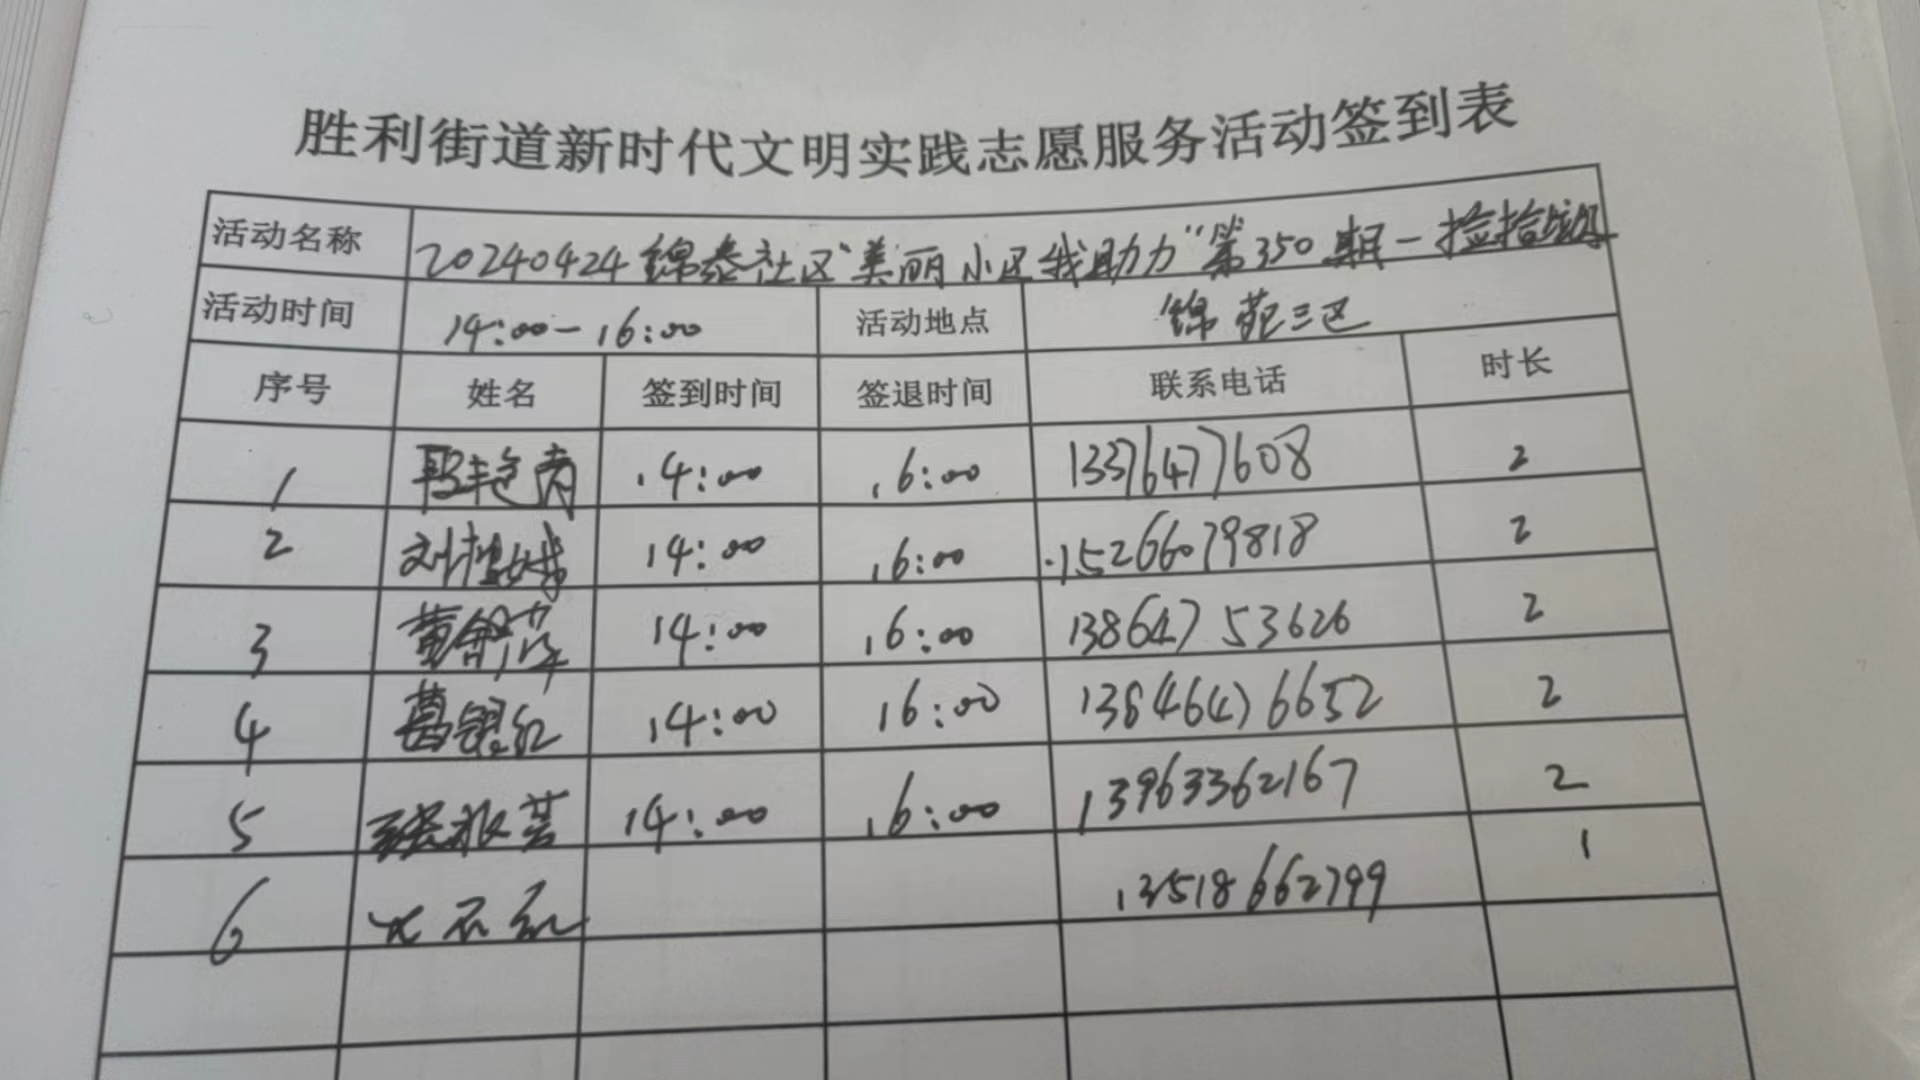 胜利街道新时代文明实践志愿服务活动签到表
活动名称 20240424锦泰社区“美丽小区我助力”第350期-捡拾垃圾
活动时间 14:00-16:00 活动地点 锦苑三区
序号 姓名 签到时间 签退时间 联系电话 时长
1 14:00 16:00 13376477608 2
2 刘 14:00 16:00 15266079818 2
3 黄 14:00 16:00 13864753626 2
4 葛银红 14:00 16:00 2
5 14:00 16:00 13963362167 2
6 13518662799 1